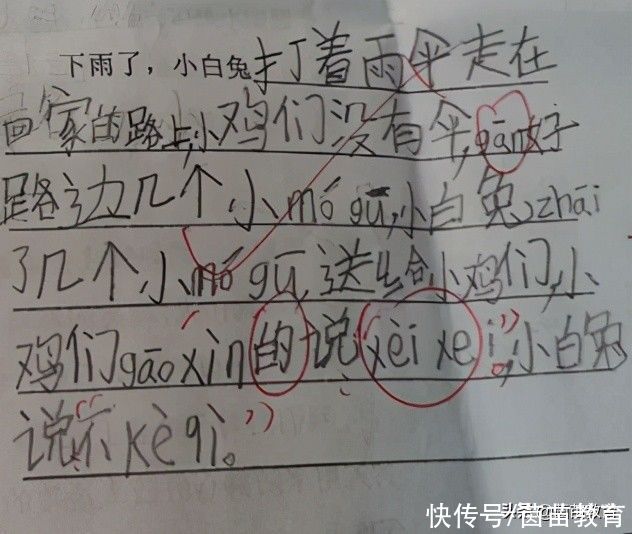 下雨了，小白兔打着雨伞走在
回家的路上,小鸡们没有伞,gān好
路边几个小mó gū,小白兔zhāi
了几个小mó gū,送给小鸡们,小
鸡们gāo xìn的说“xèi xei”,小白兔
说“不kè qì”。
快传号/茵苗教育